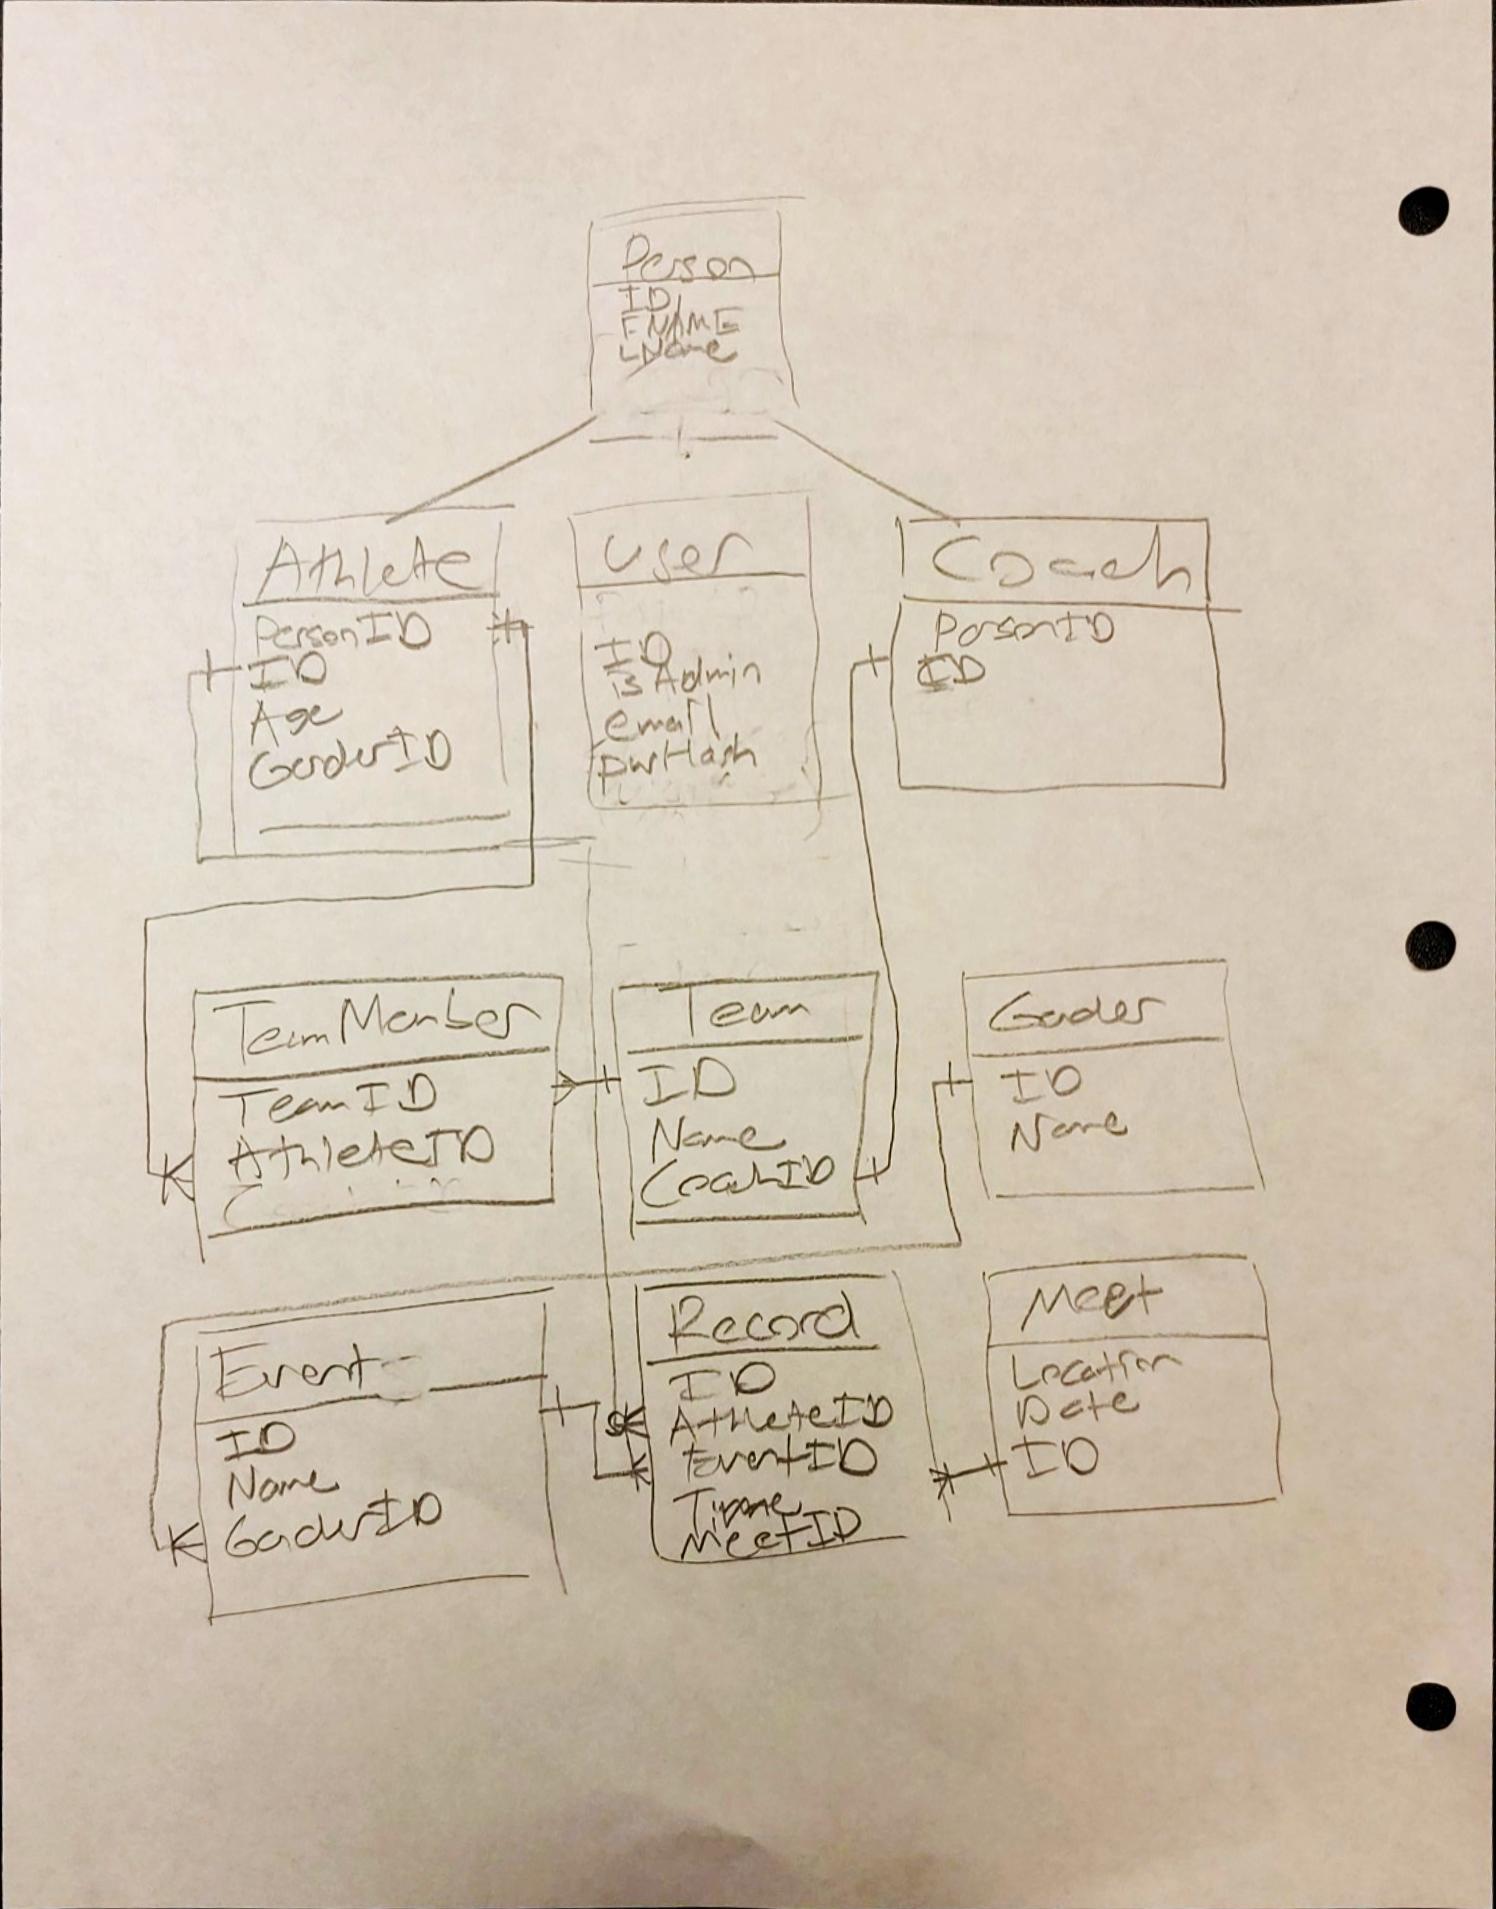 Person
ID
FNAME
LName
Athlete
PersonID
ID
Age
GenderID
User
ID
isAdmin
email
pwHash
Coach
PersonID
ID
TeamMember
TeamID
AthleteID
Team
ID
Name
CoachID
Gender
ID
Name
Event
ID
Name
GenderID
Record
ID
AthleteID
EventID
Time
MeetID
Meet
Location
Date
ID